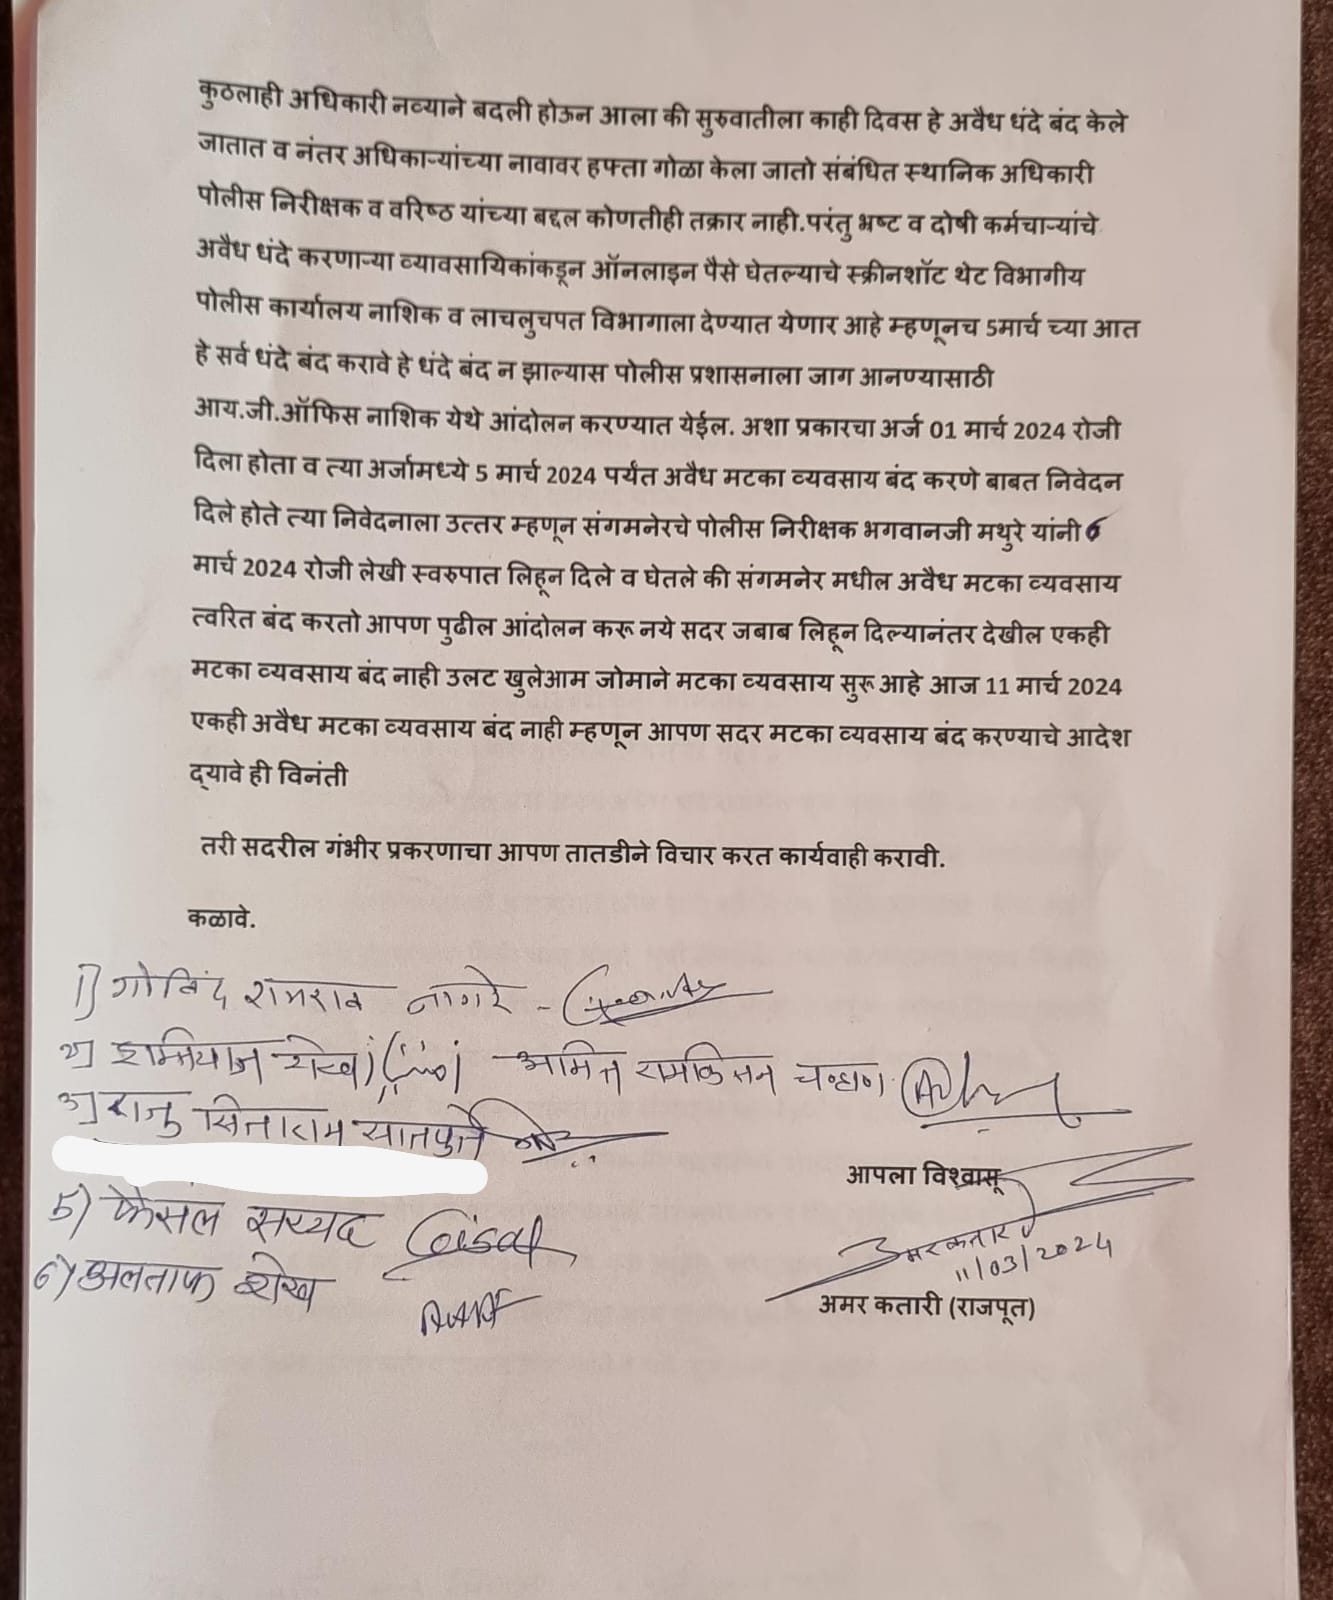 कुठलाही अधिकारी नव्याने बदली होऊन आला की सुरुवातीला काही दिवस हे अवैध धंदे बंद केले
जातात व नंतर अधिकाऱ्यांच्या नावावर हफ्ता गोळा केला जातो संबंधित स्थानिक अधिकारी
पोलीस निरीक्षक व वरिष्ठ यांच्या बद्दल कोणतीही तक्रार नाही.परंतु भ्रष्ट व दोषी कर्मचाऱ्यांचे
अवैध धंदे करणाऱ्या व्यावसायिकांकडून ऑनलाइन पैसे घेतल्याचे स्क्रीनशॉट थेट विभागीय
पोलीस कार्यालय नाशिक व लाचलुचपत विभागाला देण्यात येणार आहे म्हणूनच 5मार्च च्या आत
हे सर्व धंदे बंद करावे हे धंदे बंद न झाल्यास पोलीस प्रशासनाला जाग आनण्यासाठी
आय.जी.ऑफिस नाशिक येथे आंदोलन करण्यात येईल. अशा प्रकारचा अर्ज 01 मार्च 2024 रोजी
दिला होता व त्या अर्जामध्ये 5 मार्च 2024 पर्यंत अवैध मटका व्यवसाय बंद करणे बाबत निवेदन
दिले होते त्या निवेदनाला उत्तर म्हणून संगमनेरचे पोलीस निरीक्षक भगवानजी मथुरे यांनी 6
मार्च 2024 रोजी लेखी स्वरुपात लिहून दिले व घेतले की संगमनेर मधील अवैध मटका व्यवसाय
त्वरित बंद करतो आपण पुढील आंदोलन करू नये सदर जबाब लिहून दिल्यानंतर देखील एकही
मटका व्यवसाय बंद नाही उलट खुलेआम जोमाने मटका व्यवसाय सुरू आहे आज 11 मार्च 2024
एकही अवैध मटका व्यवसाय बंद नाही म्हणून आपण सदर मटका व्यवसाय बंद करण्याचे आदेश
द्यावे ही विनंती
तरी सदरील गंभीर प्रकरणाचा आपण तातडीने विचार करत कार्यवाही करावी.
कळावे.
1) गोविंद रामराव नागरे -
२) इम्तियाज शेख अमित रामकिसन चव्हाण
३) राजु सिताराम सातपुते
आपला विश्वासू
5) फैसल सय्यद
अमर कतारी
11/03/2024
6) अलताफ शेख
अमर कतारी (राजपूत)